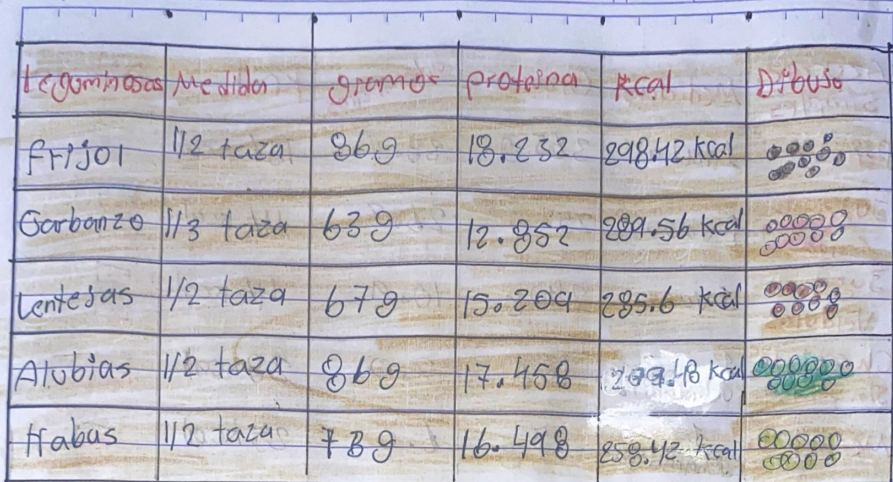 Leguminosas Medida gramos proteina Kcal Dibujo
frijol 1/2 taza 86g 18.232 298.42 kcal
Garbanzo 1/3 taza 63g 12.852 289.56 kcal
Lentejas 1/2 taza 67g 15.209 285.6 kcal
Alubias 1/2 taza 86g 17.458 kcal
Habas 1/2 taza 78g 16.498 258.42 kcal